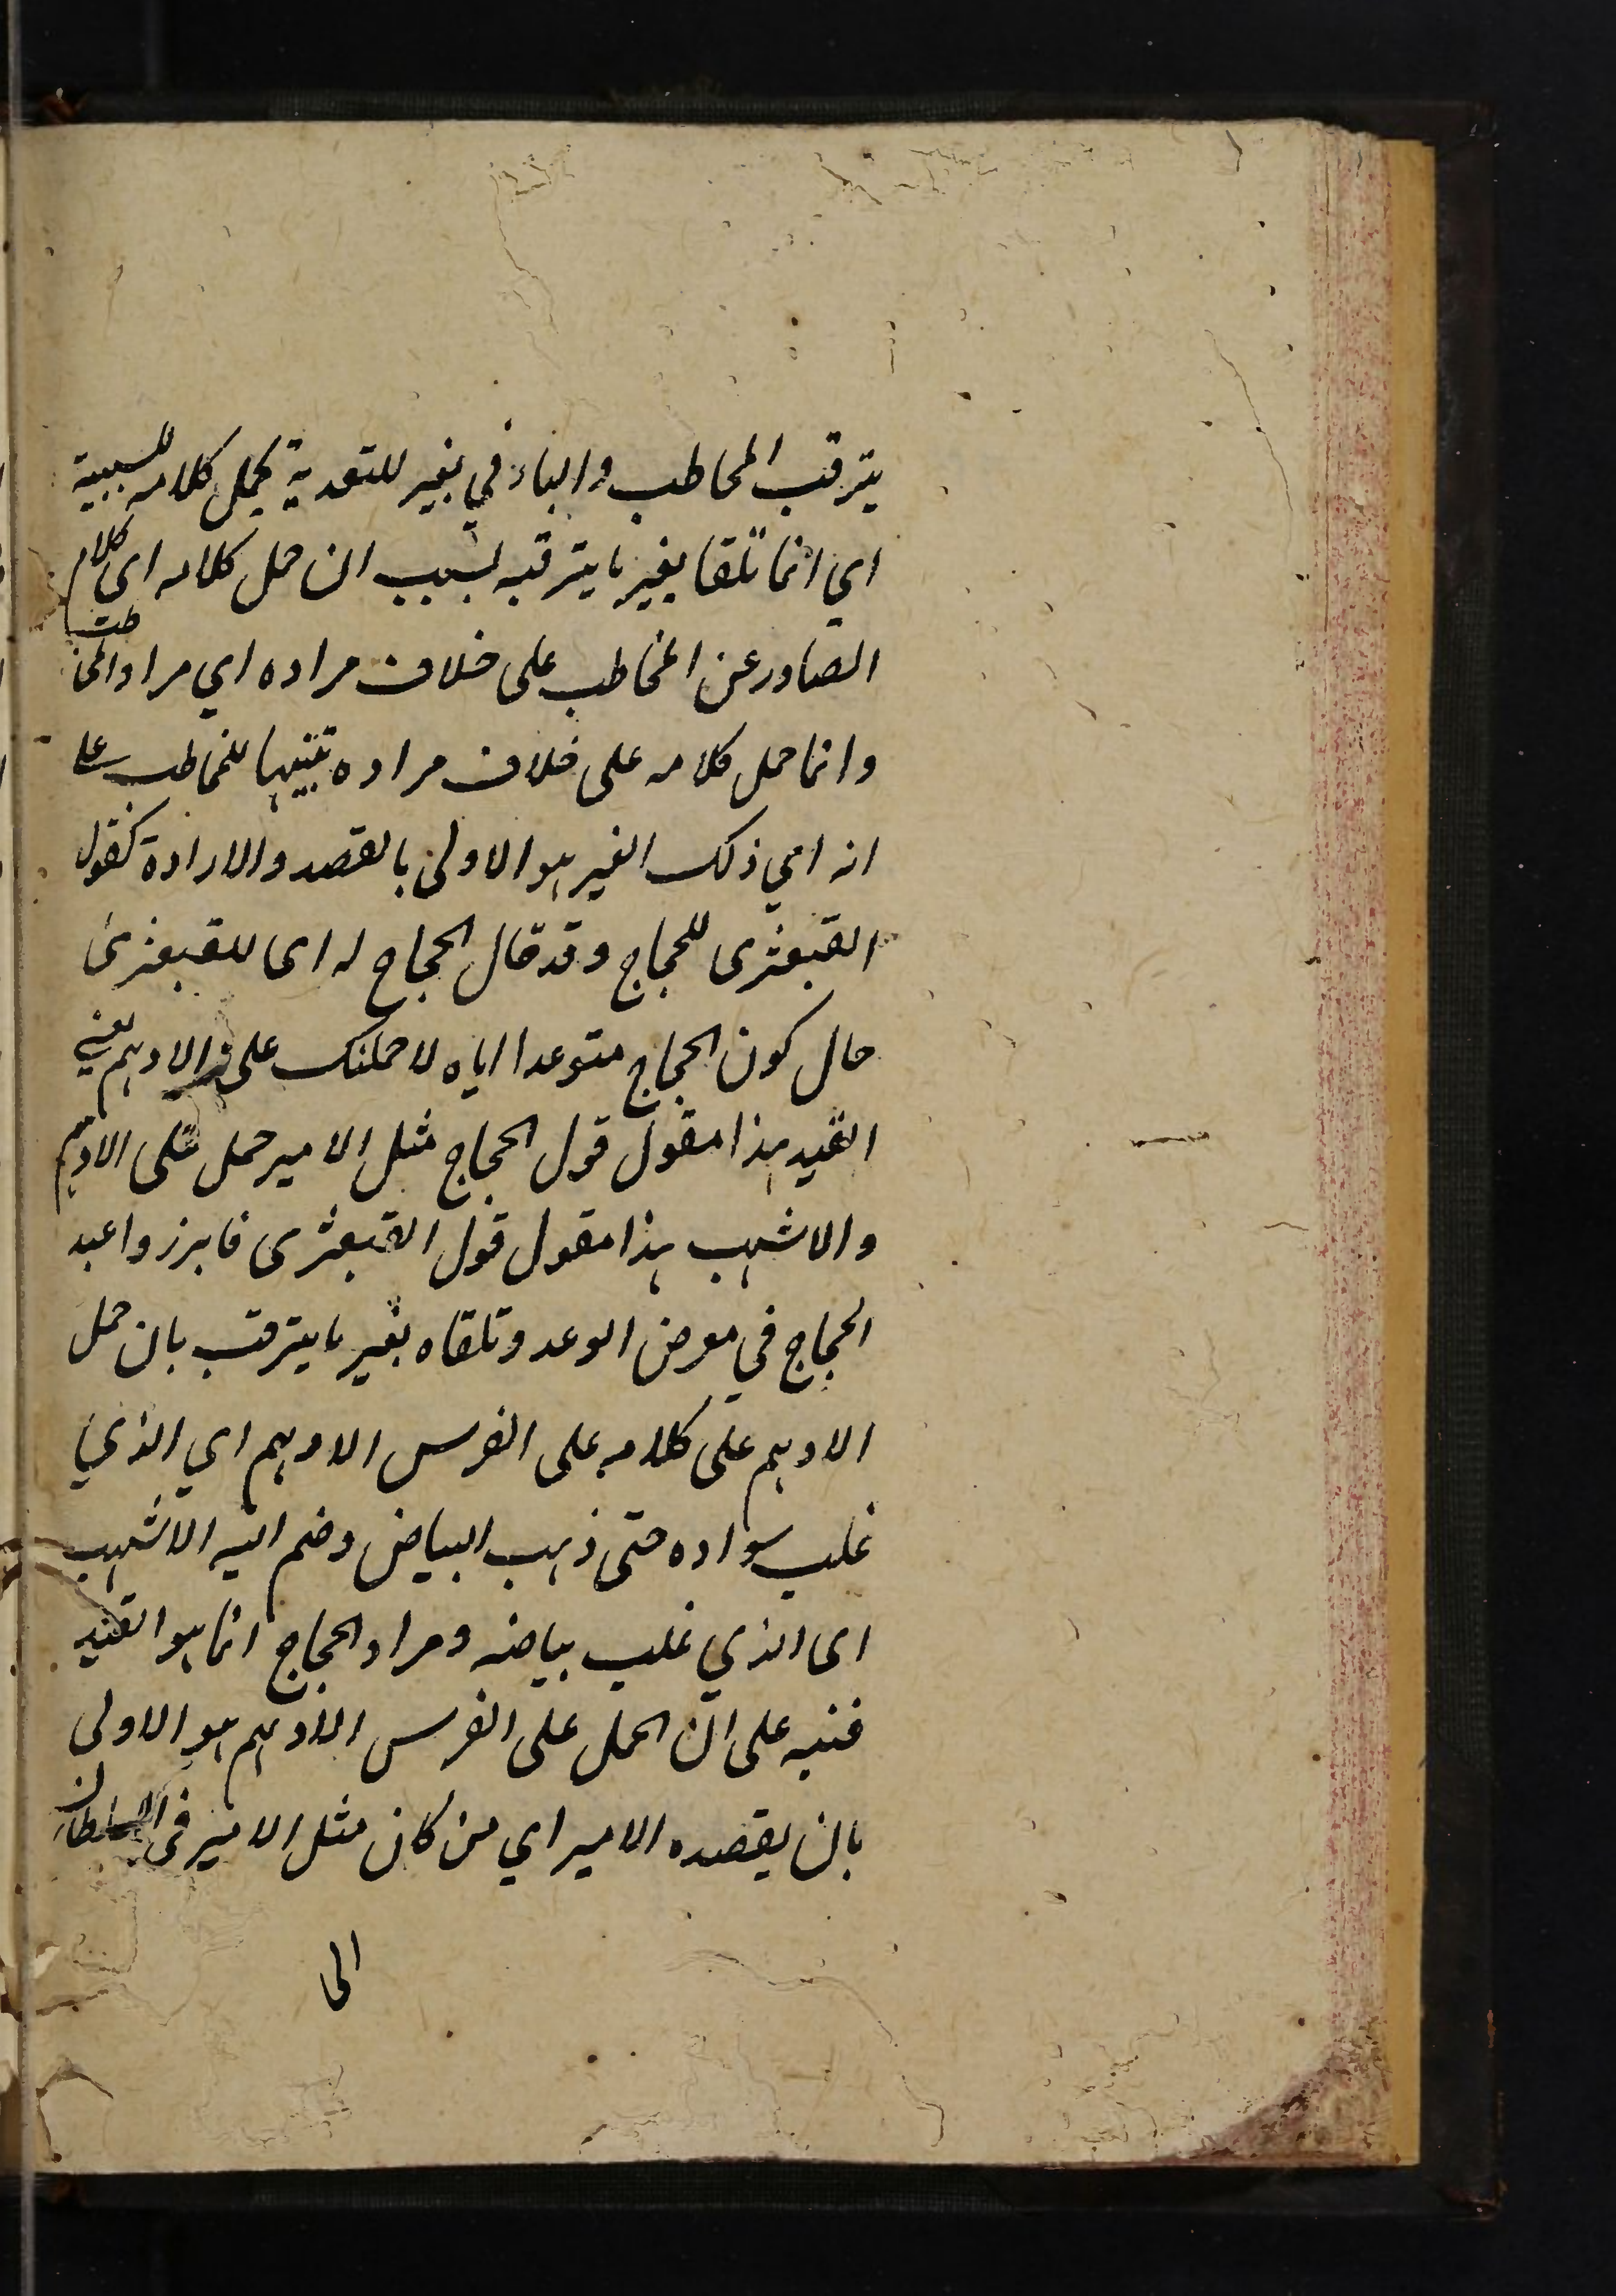 يترقب المخاطب والباء في بغير للتعدية بحمل كلامه للسببية
اي انما تلقا بغير ما يترقبه بسبب ان حمل كلامه اى كلام
الصادر عن المخاطب على خلاف مراده اي مراد المخاطب
وانما حمل كلامه على خلاف مراده تنبيها للمخاطب على
انه اي ذلك الغير هو الاولى بالقصد والارادة كقول
القبعثرى للحجاج وقد قال الحجاج له اى للقبعثرى
حال كون الحجاج متوعدا اياه لاحملنك على الادهم يعني
القيد هذا مقول قول الحجاج مثل الامير حمل على الادهم
والاشهب هذا مقول قول القبعثرى فابرز واعيد
الحجاج في معرض الوعد وتلقاه بغير ما يترقب بان حمل
الادهم على كلامه على الفرس الادهم اي الذي
غلب سواده حتى ذهب البياض وضم اليه الاشهب
اى الذي غلب بياضه ومراد الحجاج انما هو القيد
فنبه على ان الحمل على الفرس الادهم هو الاولى
بان يقصده الامير اي من كان مثل الامير فى السلطان
الى